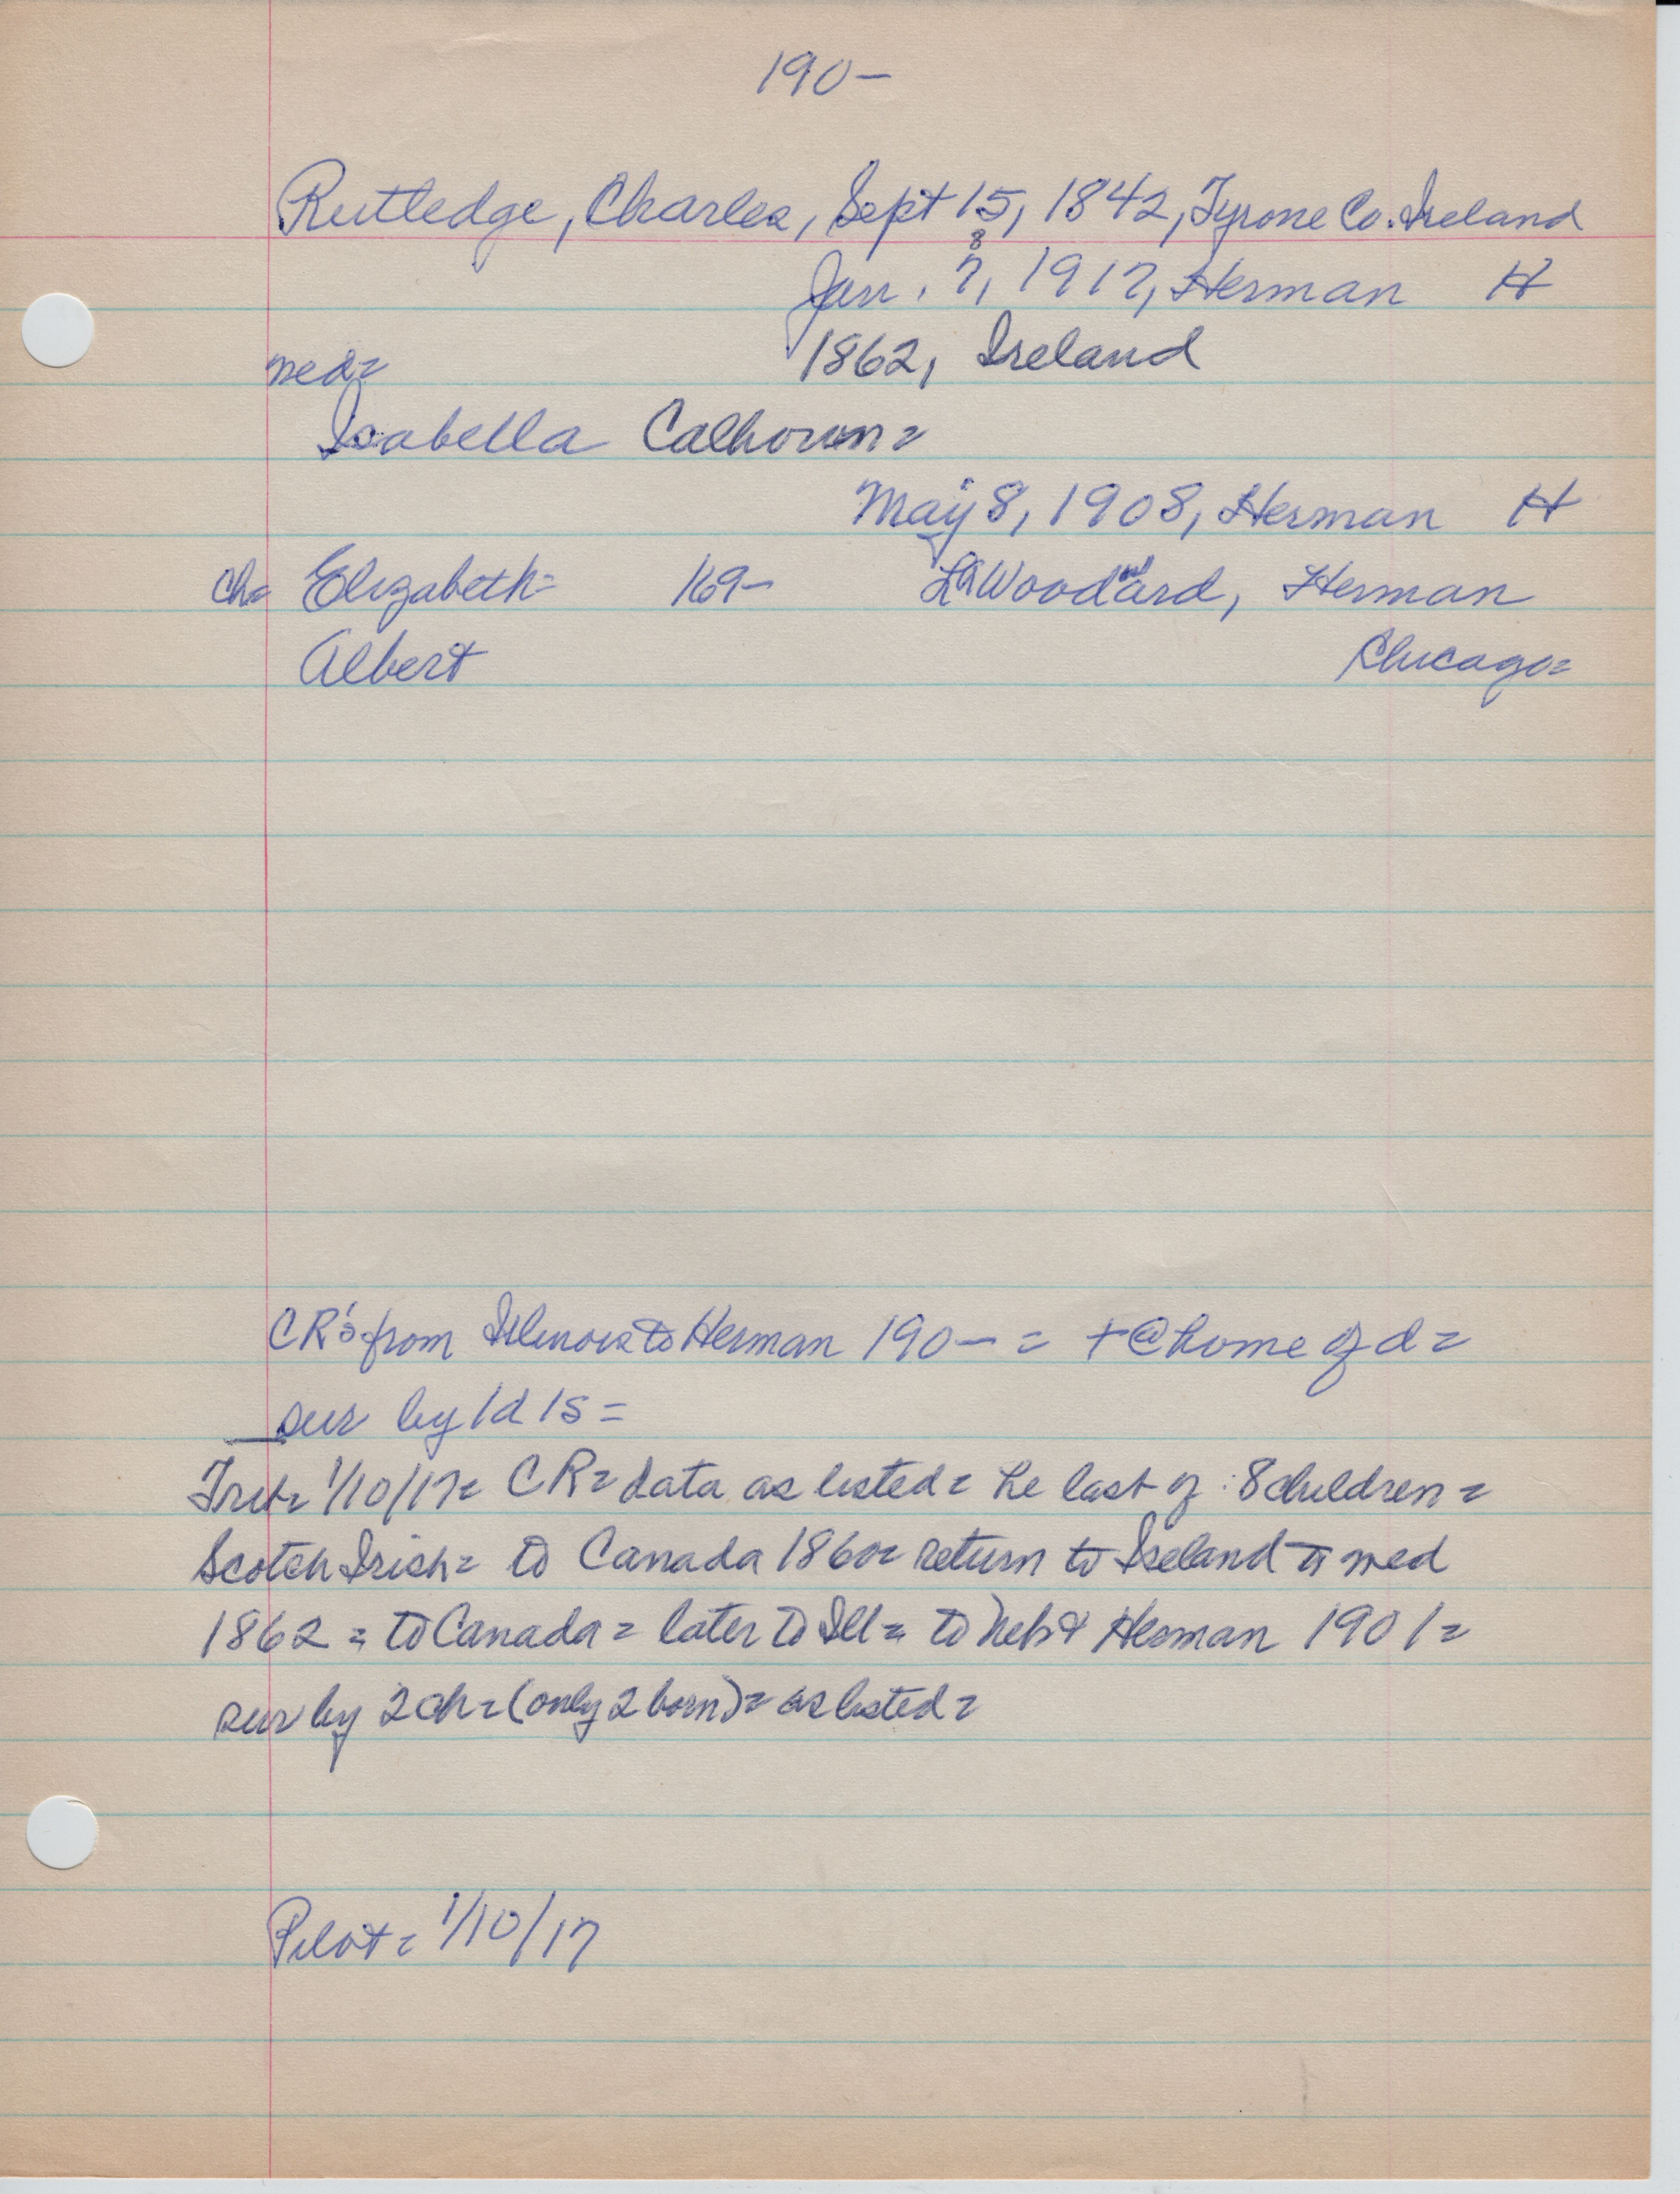 190-
Rutledge, Charles, Sept 15, 1842, Tyrone Co. Ireland
8
Jan. 7, 1917, Herman H
med= 1862, Ireland
Isabella Calhoun=
May 8, 1908, Herman H
Ch= Elizabeth= 169- Woodard, Herman
Albert Chicago=
CR's from Illinois to Herman 190- = + @ home of d=
sur by 1d 1s=
Trib= 1/10/17= CR= data as listed= he last of 8 children=
Scotch Irish= to Canada 1860= return to Ireland & med
1862= to Canada= later to Ill= to Neb & Herman 1901=
sur by 2 ch=(only 2 born)= as listed=
Pilot= 1/10/17